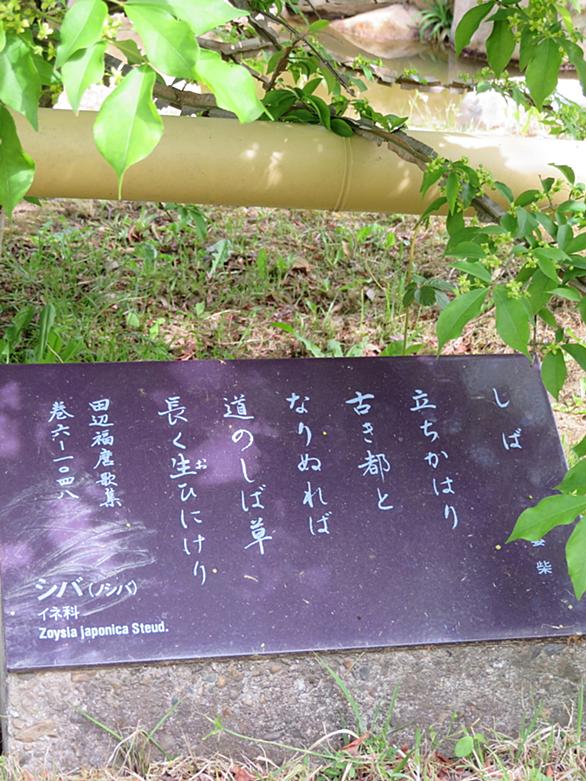 しば
柴
立ちかはり
古き都と
なりぬれば
道のしば草
長く生ひにけり
お
田辺福麿歌集
巻六ー一〇四八
シバ(ノシバ)
イネ科
Zoysia japonica Steud.